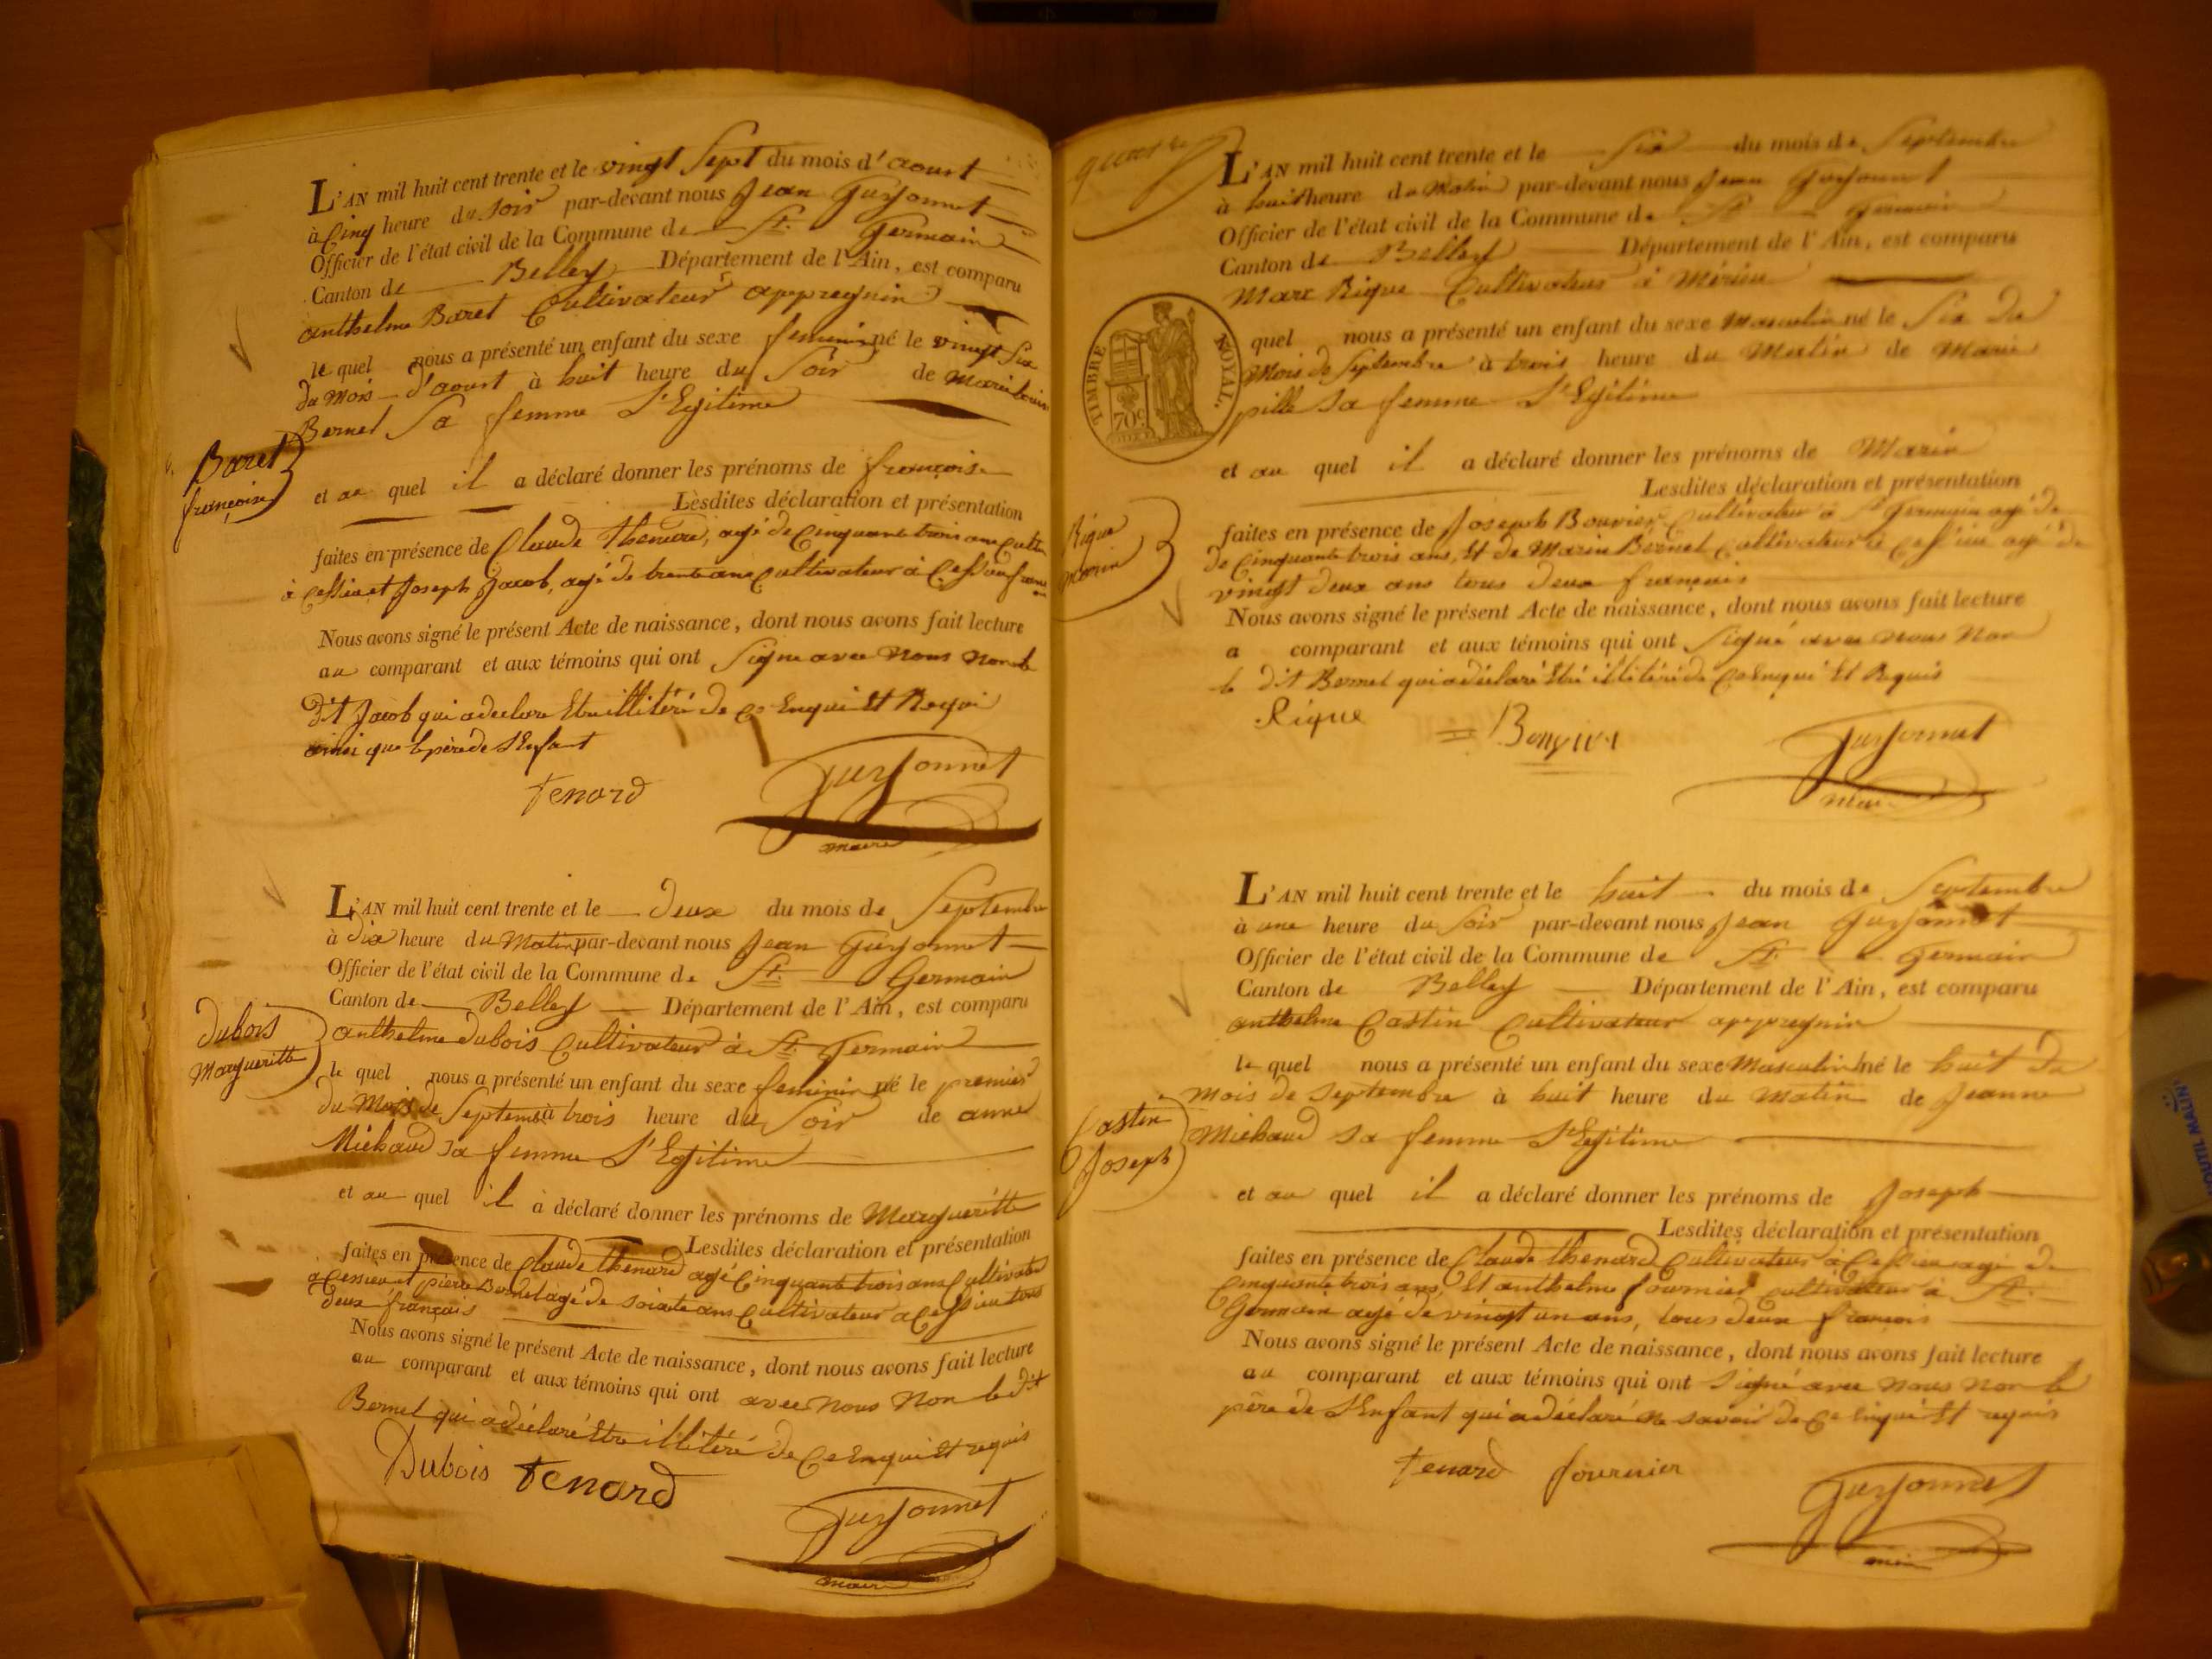 L'AN mil huit cent trente et le vingt Sept du mois d'aoust
à Cinq heure du Soir par-devant nous Jean Guyonnet
Officier de l'état civil de la Commune de St. Germain
Canton de Belley Département de l'Ain, est comparu
anthelme Baret Cultivateur appregnin
le quel nous a présenté un enfant du sexe feminin né le vingt Six
du mois d'aoust à huit heure du Soir de Marie Louise
Bernet Sa femme L'Egitime
Baret
françoise
et au quel il a déclaré donner les prénoms de françoise
Lesdites déclaration et présentation
faites en présence de Claude thenard, agé de Cinquante trois ans Cultr
à Cessieu et Joseph Jacob, agé de trente ans Cultivateur à
Nous avons signé le présent Acte de naissance, dont nous avons fait lecture
au comparant et aux témoins qui ont Signe avec nous non le
dit Jacob qui a declare Etre illitéré de Ce Enqui Et Requi
ainsi que le père de L'Enfant
tenard
Guyonnet
maire
L'AN mil huit cent trente et le deux du mois de Septembre
à dix heure du Matin par-devant nous Jean Guyonnet
Officier de l'état civil de la Commune de St. Germain
Canton de Belley Département de l'Ain, est comparu
dubois
Margueritte
anthelme dubois Cultivateur à St. Germain
le quel nous a présenté un enfant du sexe feminin né le premier
du Mois de Septemb à trois heure du Soir de anne
Michaud sa femme L'Egitime
et au quel il à déclaré donner les prénoms de Margueritte
Lesdites déclaration et présentation
faites en présence de Claude thenard agé Cinquante trois ans Cultivateur
a Cessieu et pierre Bernet agé de soixante ans Cultivateur a Cessieu tous
deux français
Nous avons signé le présent Acte de naissance, dont nous avons fait lecture
au comparant et aux témoins qui ont avec nous non le dit
Bernet qui a déclaré Etre illitéré de Ce Enqui Et requis
Dubois tenard
Guyonnet
maire
L'AN mil huit cent trente et le Six du mois de Septembre
à huit heure du Matin par-devant nous Jean Guyonnet
Officier de l'état civil de la Commune de St. Germain
Canton de Belley Département de l'Ain, est comparu
Marc Rique Cultivateur à Mérieu
TIMBRE ROYAL.
70c.
quel nous a présenté un enfant du sexe Masculin né le Six du
Mois de Septembre à trois heure du Matin de Marie
pille sa femme L'Egitime
et au quel il a déclaré donner les prénoms de Marin
Lesdites déclaration et présentation
Rique
Marin
faites en présence de Joseph Bouvier Cultivateur à St Germain agé de
de Cinquante trois ans, Et de Marin Bernet Cultivateur à Cessieu agé de
vingt deux ans tous deux français
Nous avons signé le présent Acte de naissance, dont nous avons fait lecture
a comparant et aux témoins qui ont Signé avec nous Non
le dit Bernet qui a déclaré Etre illitéré de Ce Enqui Et Requis
Rique
Guyonnet
L'AN mil huit cent trente et le huit du mois de Septembre
à une heure du Soir par-devant nous Jean Guyonnet
Officier de l'état civil de la Commune de St. Germain
Canton de Belley Département de l'Ain, est comparu
anthelme Castin Cultivateur appregnin
le quel nous a présenté un enfant du sexe Masculin né le huit du
mois de Septembre à huit heure du Matin de Jeanne
Castin
Joseph
Michaud sa femme L'Egitime
et au quel il a déclaré donner les prénoms de Joseph
Lesdites déclaration et présentation
faites en présence de Claude thenard Cultivateur à Cessieu agé de
Cinquante trois ans, Et anthelme fournier cultivateur à St.
Germain agé de vingt un ans, tous deux francois
Nous avons signé le présent Acte de naissance, dont nous avons fait lecture
au comparant et aux témoins qui ont Signé avec nous non le
père de L'Enfant qui a déclaré ne savoir de Ce Enqui Et requis
tenard fournier
Guyonnet